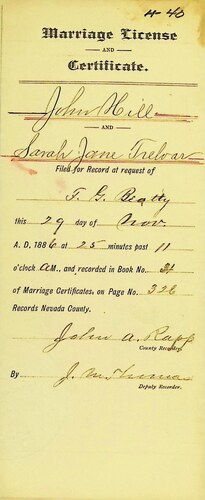 4-40
Marriage License
AND
Certificate.
John Hill
AND
Sarah Jane Treloar
Filed for Record at request of
T. G. Beatty
this 29 day of Nov
A. D. 1886 at 25 minutes past 11
o'clock A.M., and recorded in Book No. 34
of Marriage Certificates, on Page No. 326
Records Nevada County.
John A. Rapp
County Recorder.
By J. M.
Deputy Recorder.